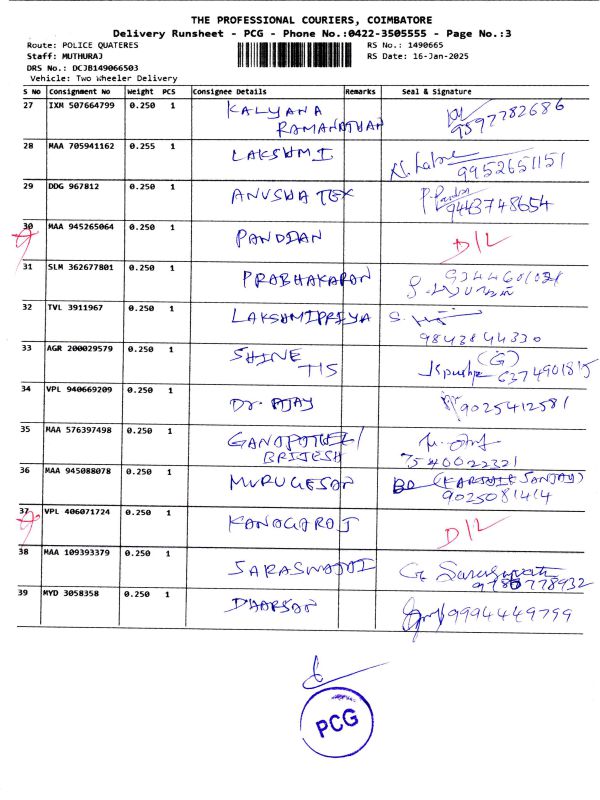 THE PROFESSIONAL COURIERS, COIMBATORE
Delivery Runsheet - PCG - Phone No.:0422-3505555 - Page No.:3
Route: POLICE QUATERES RS No.: 1490665
Staff: MUTHURAJ RS Date: 16-Jan-2025
DRS No.: DCJB149066503
Vehicle: Two Wheeler Delivery
S No Consignment No Weight PCS Consignee Details Remarks Seal & Signature
27 IXM 507664799 0.250 1 KALYANA
RAMANATHAN 9597782686
28 MAA 705941162 0.255 1 LAKSHMI
9952651151
29 DDG 967812 0.250 1 ANUSHA TEX
9443748654
30 MAA 945265064 0.250 1 PANDIAN D/L
31 SLM 362677801 0.250 1 PRABHAKARAN 9244601021
32 TVL 3911967 0.250 1 LAKSHMIPRIYA
9843844330
33 AGR 200029579 0.250 1 SHINE (G)
TIS 6374901815
34 VPL 940669209 0.250 1 Dr. AJAY 9025412581
35 MAA 576397498 0.250 1 GANAPATHEL/
BRIJESH 7540022321
36 MAA 945088078 0.250 1 MURUGESAN SANJAY)
9025081414
37 VPL 406071724 0.250 1 KANAGARAJ D/L
38 MAA 109393379 0.250 1 SARASWATHI G. Saraswathi
39 MYD 3058358 0.250 1 DHARSAN 9994449799
PCG